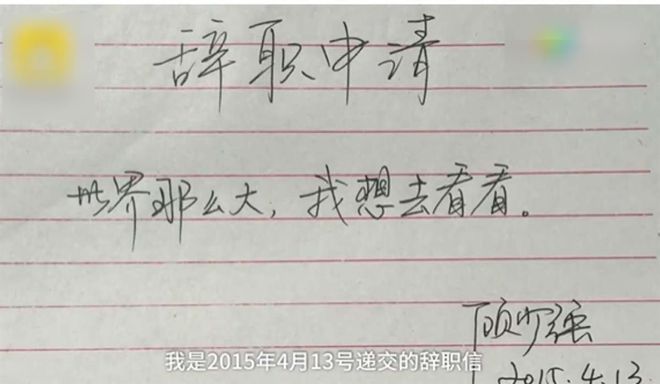 辞职申请
世界那么大，我想去看看。
顾少强
2015.4.13
我是2015年4月13号递交的辞职信